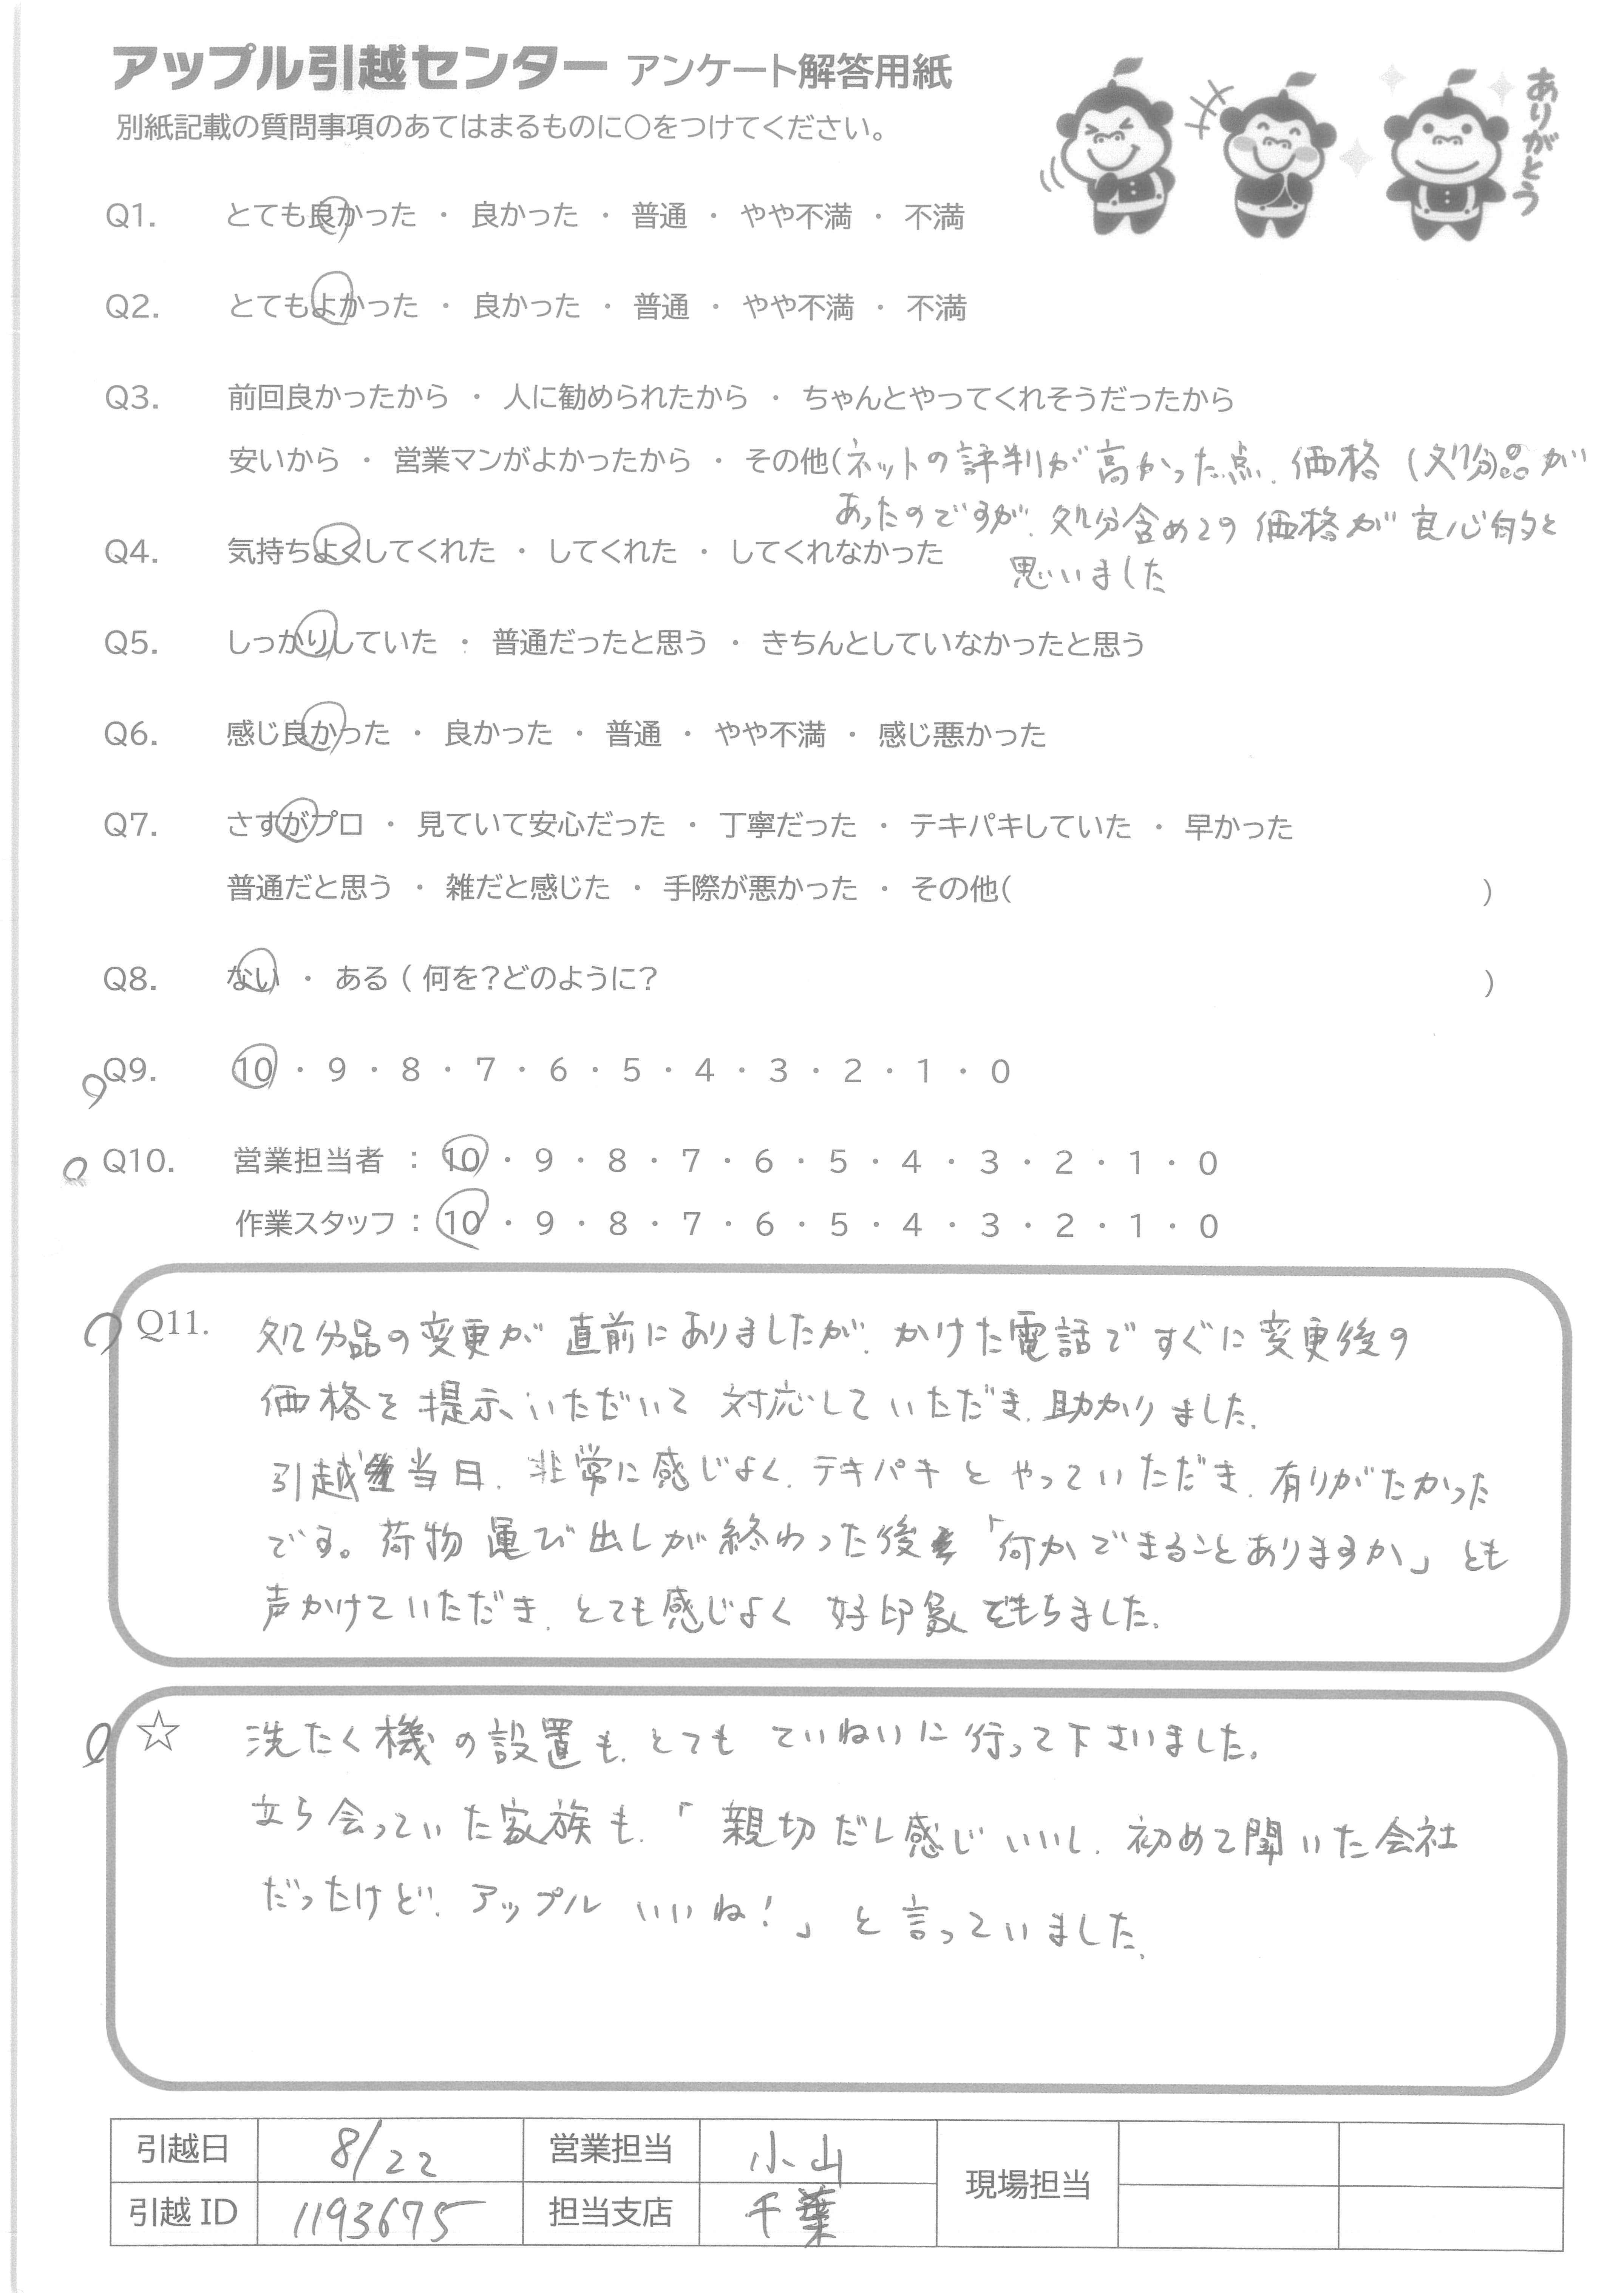 アップル引越センター アンケート解答用紙
別紙記載の質問事項のあてはまるものに〇をつけてください。
ありがとう
Q1. とても良かった ・ 良かった ・ 普通 ・ やや不満 ・ 不満
Q2. とてもよかった ・ 良かった ・ 普通 ・ やや不満 ・ 不満
Q3. 前回良かったから ・ 人に勧められたから ・ ちゃんとやってくれそうだったから
安いから ・ 営業マンがよかったから ・ その他(ネットの評判が高かった点、価格(処分品が
あったのですが、処分含めての価格が良心的と
思いました
Q4. 気持ちよくしてくれた ・ してくれた ・ してくれなかった
Q5. しっかりしていた ・ 普通だったと思う ・ きちんとしていなかったと思う
Q6. 感じ良かった ・ 良かった ・ 普通 ・ やや不満 ・ 感じ悪かった
Q7. さすがプロ ・ 見ていて安心だった ・ 丁寧だった ・ テキパキしていた ・ 早かった
普通だと思う ・ 雑だと感じた ・ 手際が悪かった ・ その他( )
Q8. ない ・ ある ( 何を？どのように？ )
Q9. 10 ・ 9 ・ 8 ・ 7 ・ 6 ・ 5 ・ 4 ・ 3 ・ 2 ・ 1 ・ 0
Q10. 営業担当者 : 10 ・ 9 ・ 8 ・ 7 ・ 6 ・ 5 ・ 4 ・ 3 ・ 2 ・ 1 ・ 0
作業スタッフ : 10 ・ 9 ・ 8 ・ 7 ・ 6 ・ 5 ・ 4 ・ 3 ・ 2 ・ 1 ・ 0
Q11. 処分品の変更が直前にありましたが、かけた電話ですぐに変更後の
価格を提示いただいて対応していただき、助かりました。
引越当日、非常に感じよく、テキパキとやっていただき、有りがたかった
です。荷物運び出しが終わった後「何かできることありますか」とも
声かけていただき、とても感じよく好印象をもちました。
☆ 洗たく機の設置も、とてもていねいに行って下さいました。
立ち会っていた家族も、「親切だし感じいいし、初めて聞いた会社
だったけど、アップルいいね!」と言っていました。
引越日 8/22 営業担当 小山 現場担当
引越 ID 1193675 担当支店 千葉